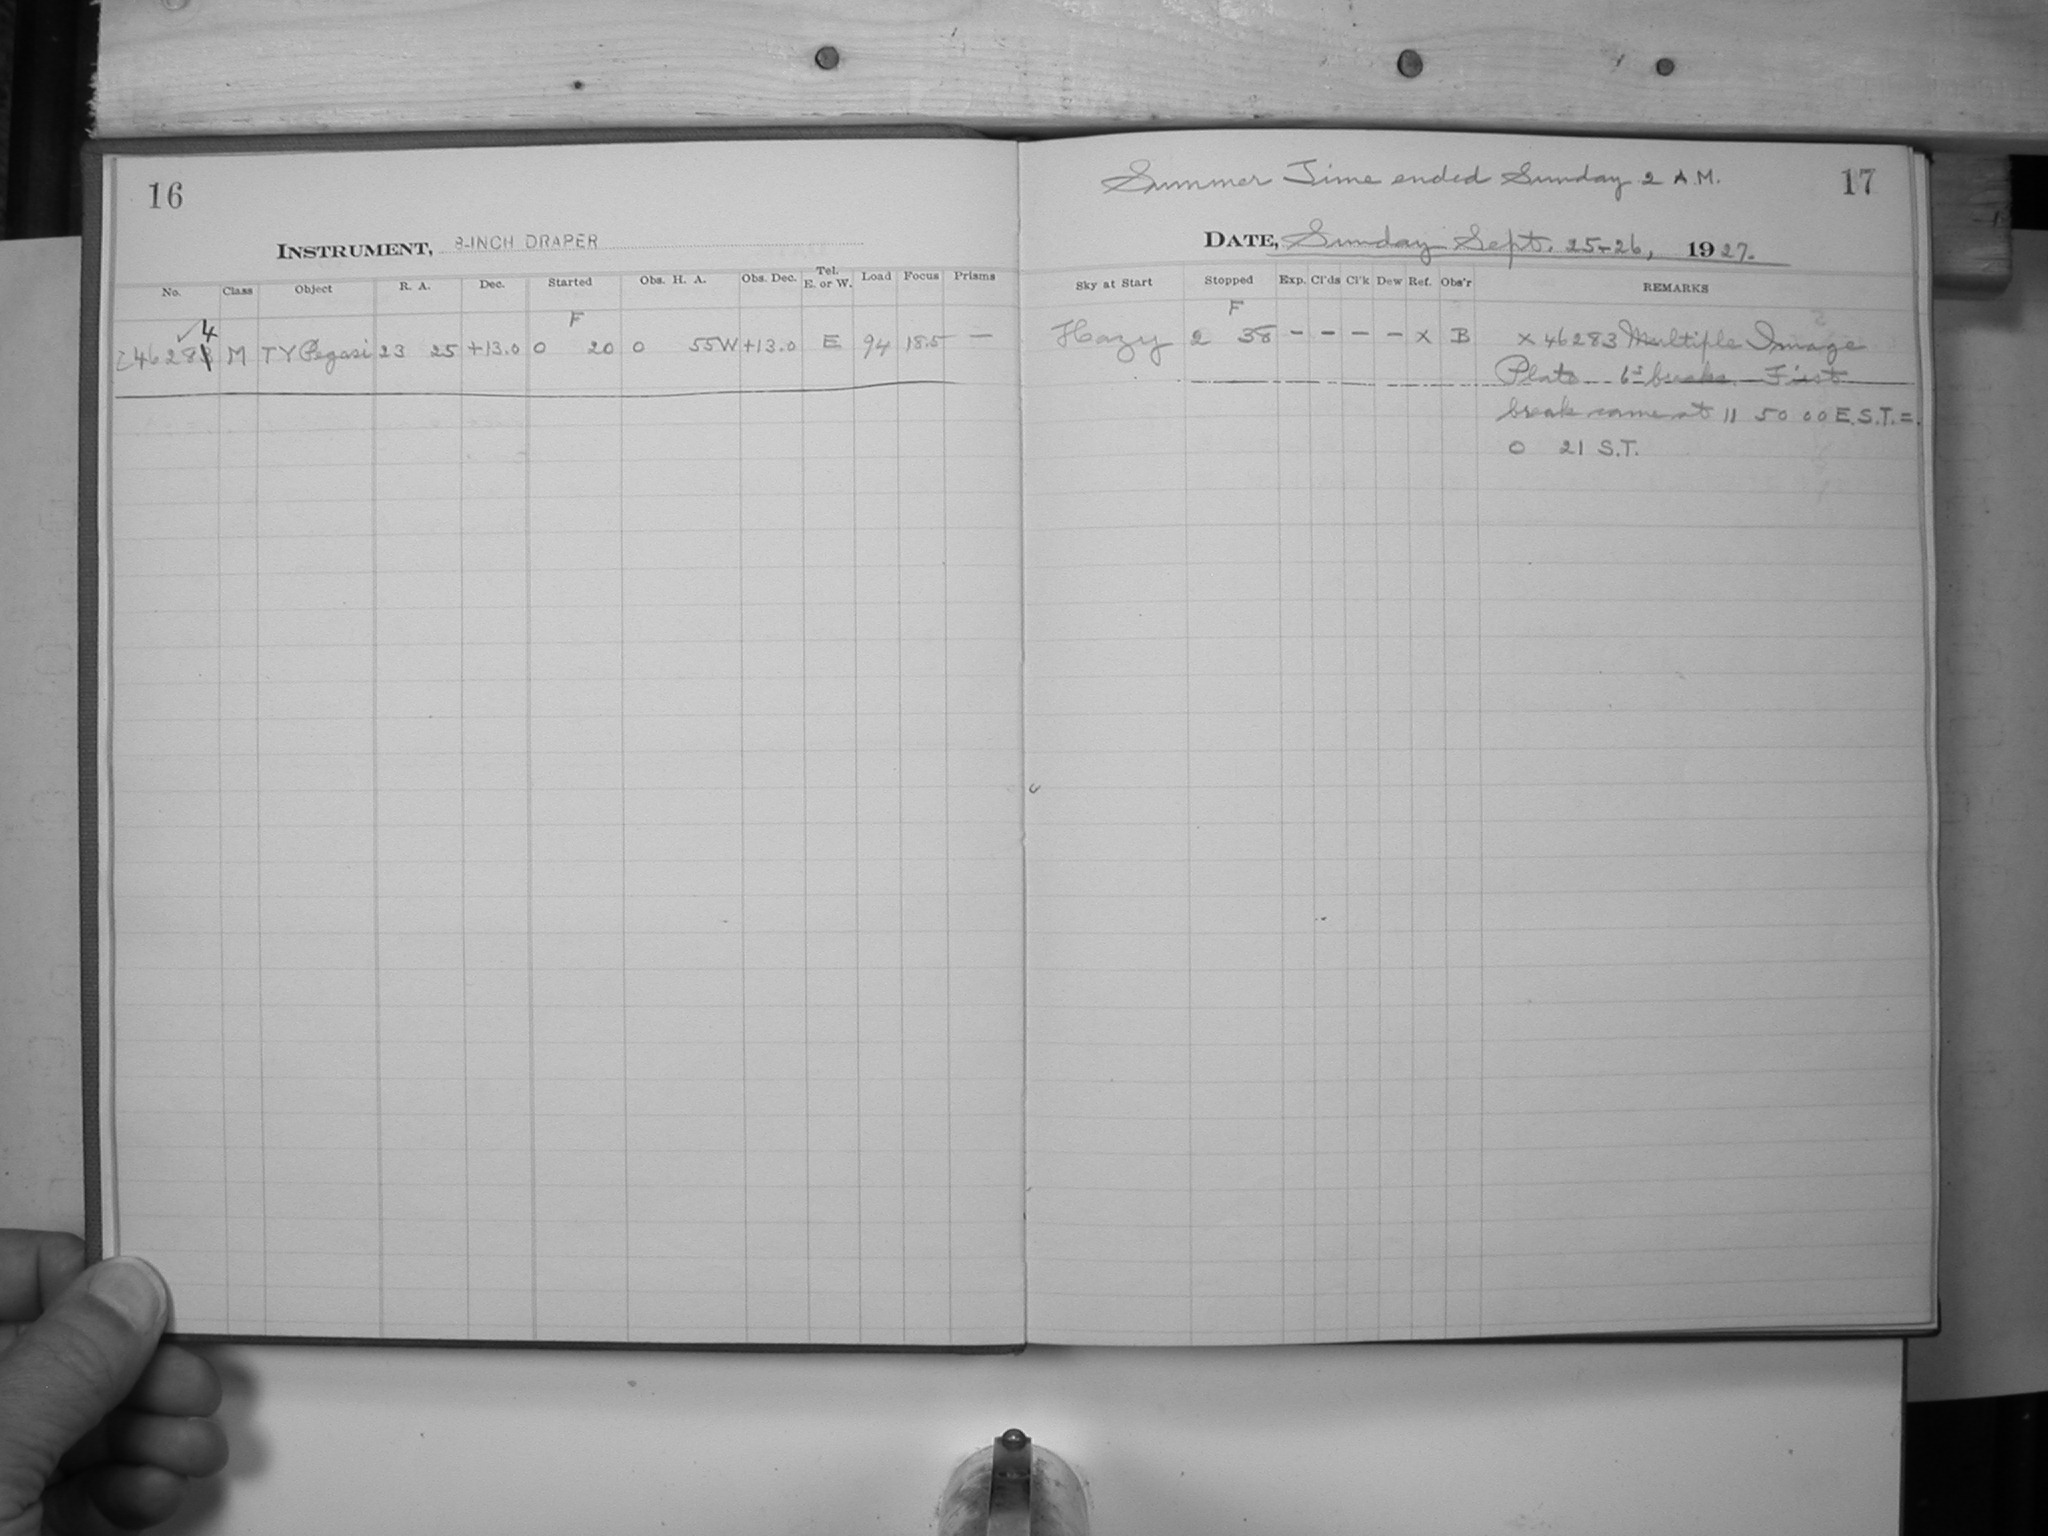 16
INSTRUMENT, 8-INCH DRAPER
No. Class Object R. A. Dec. Started Obs. H. A. Obs. Dec. Tel. E. or W. Load Focus Prisms
F
4
I 46283 M TY Pegasi 23 25 +13.0 0 20 0 55W +13.0 E 94 18.5 —
Summer Time ended Sunday 2 A.M.
17
DATE, Sunday Sept. 25-26, 1927.
Sky at Start Stopped Exp. Cl'ds Cl'k Dew Ref. Obs'r REMARKS
F
Hazy 2 38 - - - - x B x 46283 Multiple Image
Plate breaks. First
break came at 11 50 00 E.S.T. =
0 21 S.T.